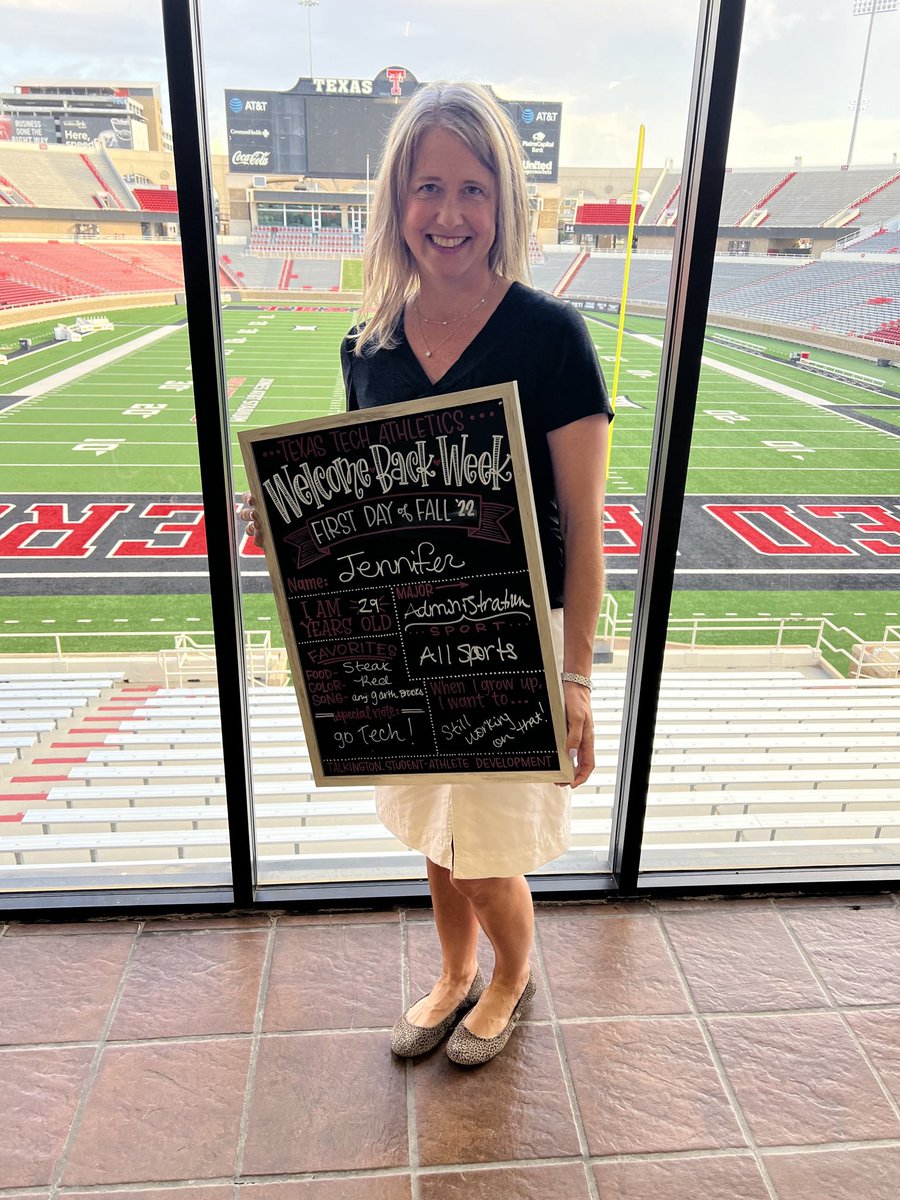 TEXAS T
AT&T
AT&T
Covenant Health
Coca-Cola
PlainsCapital Bank
United
BUSINESS DONE THE RIGHT WAY
Here,
speed
···TEXAS TECH ATHLETICS···
Welcome Back Week
FIRST DAY of FALL '22
Name: Jennifer
I AM 29 YEARS OLD
MAJOR
Administration
SPORT
All Sports
FAVORITES
FOOD- Steak
COLOR- Red
SONG- any garth Brooks
special note:
go Tech!
When I grow up, I want to...
Still working on that!
TALKINGTON STUDENT-ATHLETE DEVELOPMENT
RE
ED